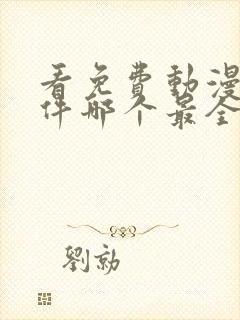 看免費動漫
件哪个最全
劉勍